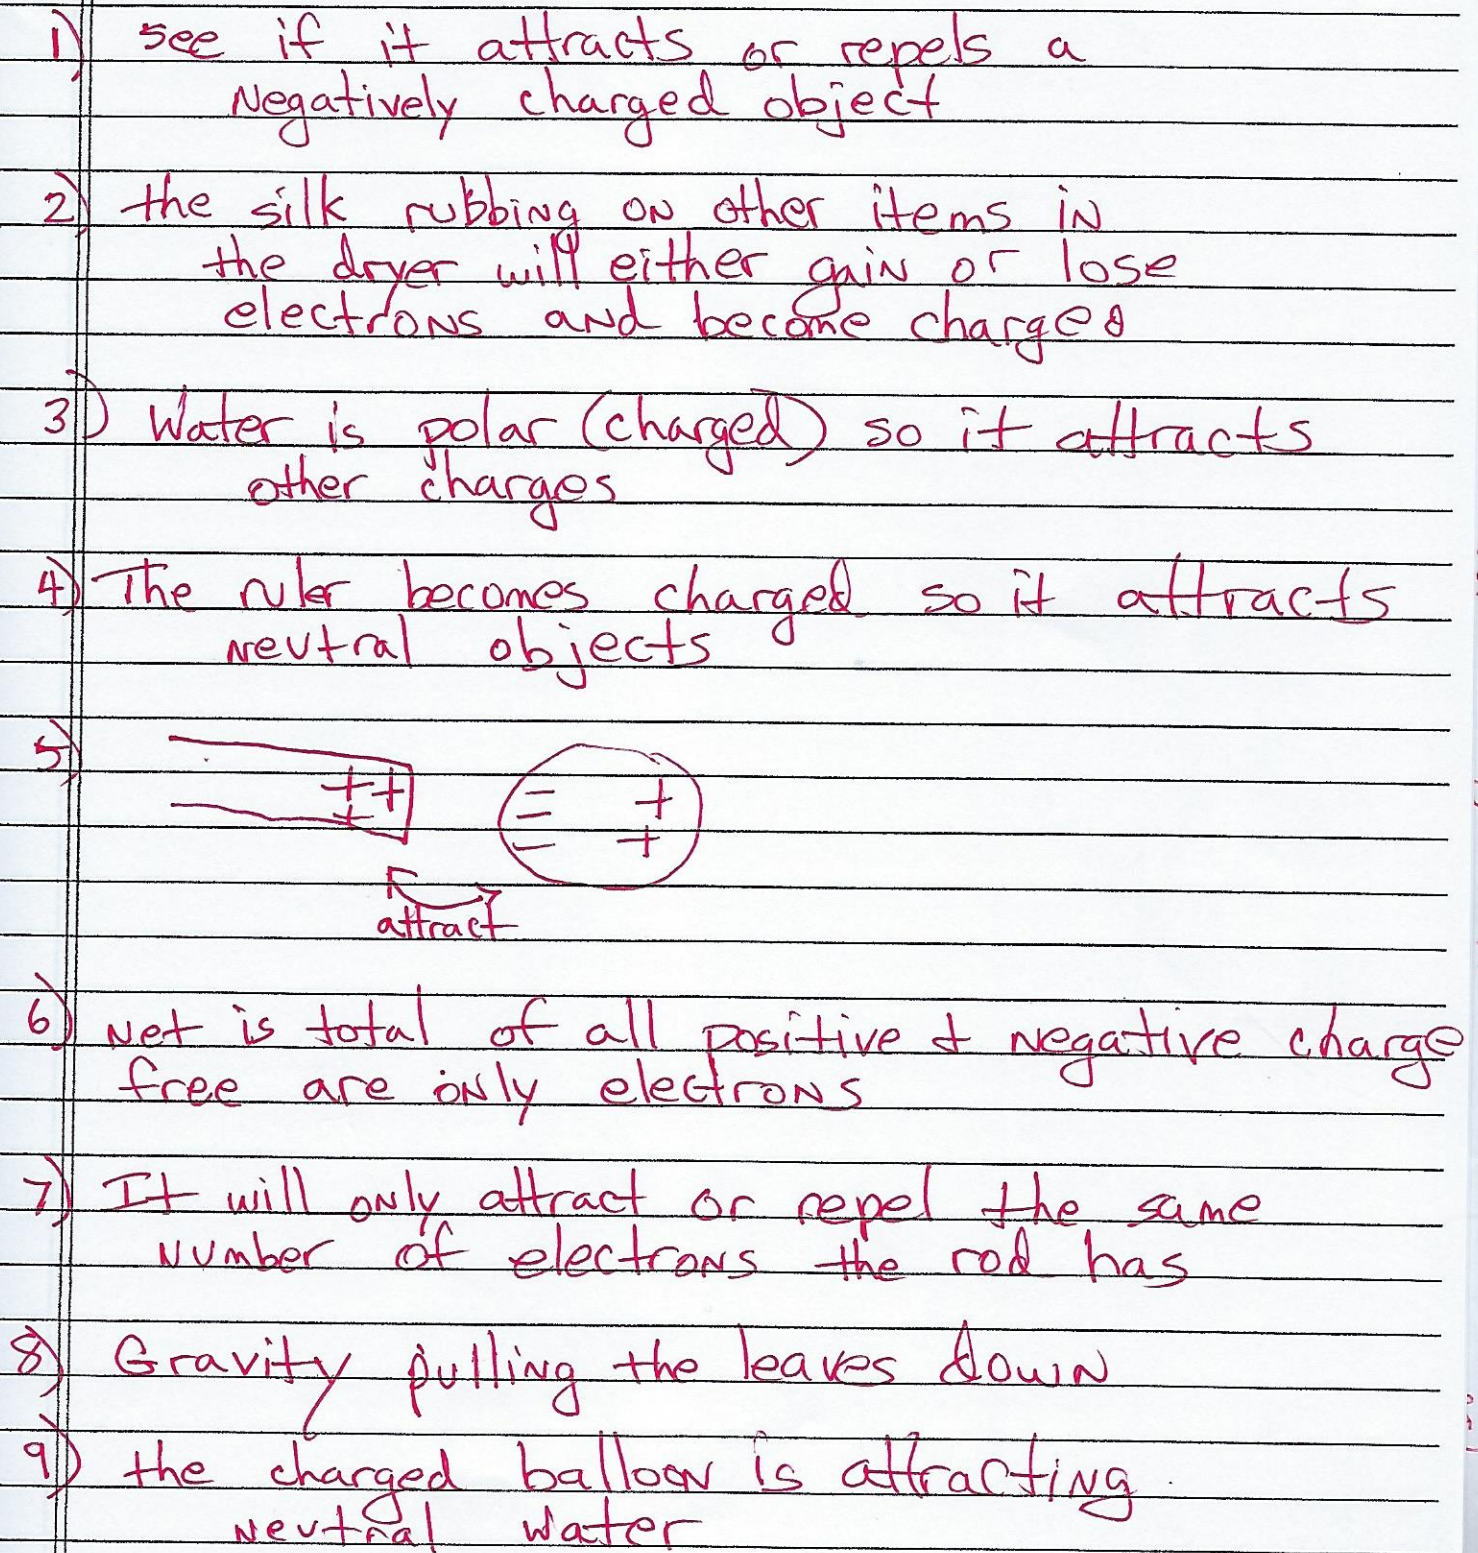 1) see if it attracts or repels a
Negatively charged object
2) the silk rubbing on other items in
the dryer will either gain or lose
electrons and become charged
3) Water is polar (charged) so it attracts
other charges
4) The ruler becomes charged so it attracts
neutral objects
5)
++ +
= - + +
attract
6) Net is total of all positive & negative charge
free are only electrons
7) It will only attract or repel the same
number of electrons the rod has
8) Gravity pulling the leaves down
9) the charged balloon is attracting
neutral water